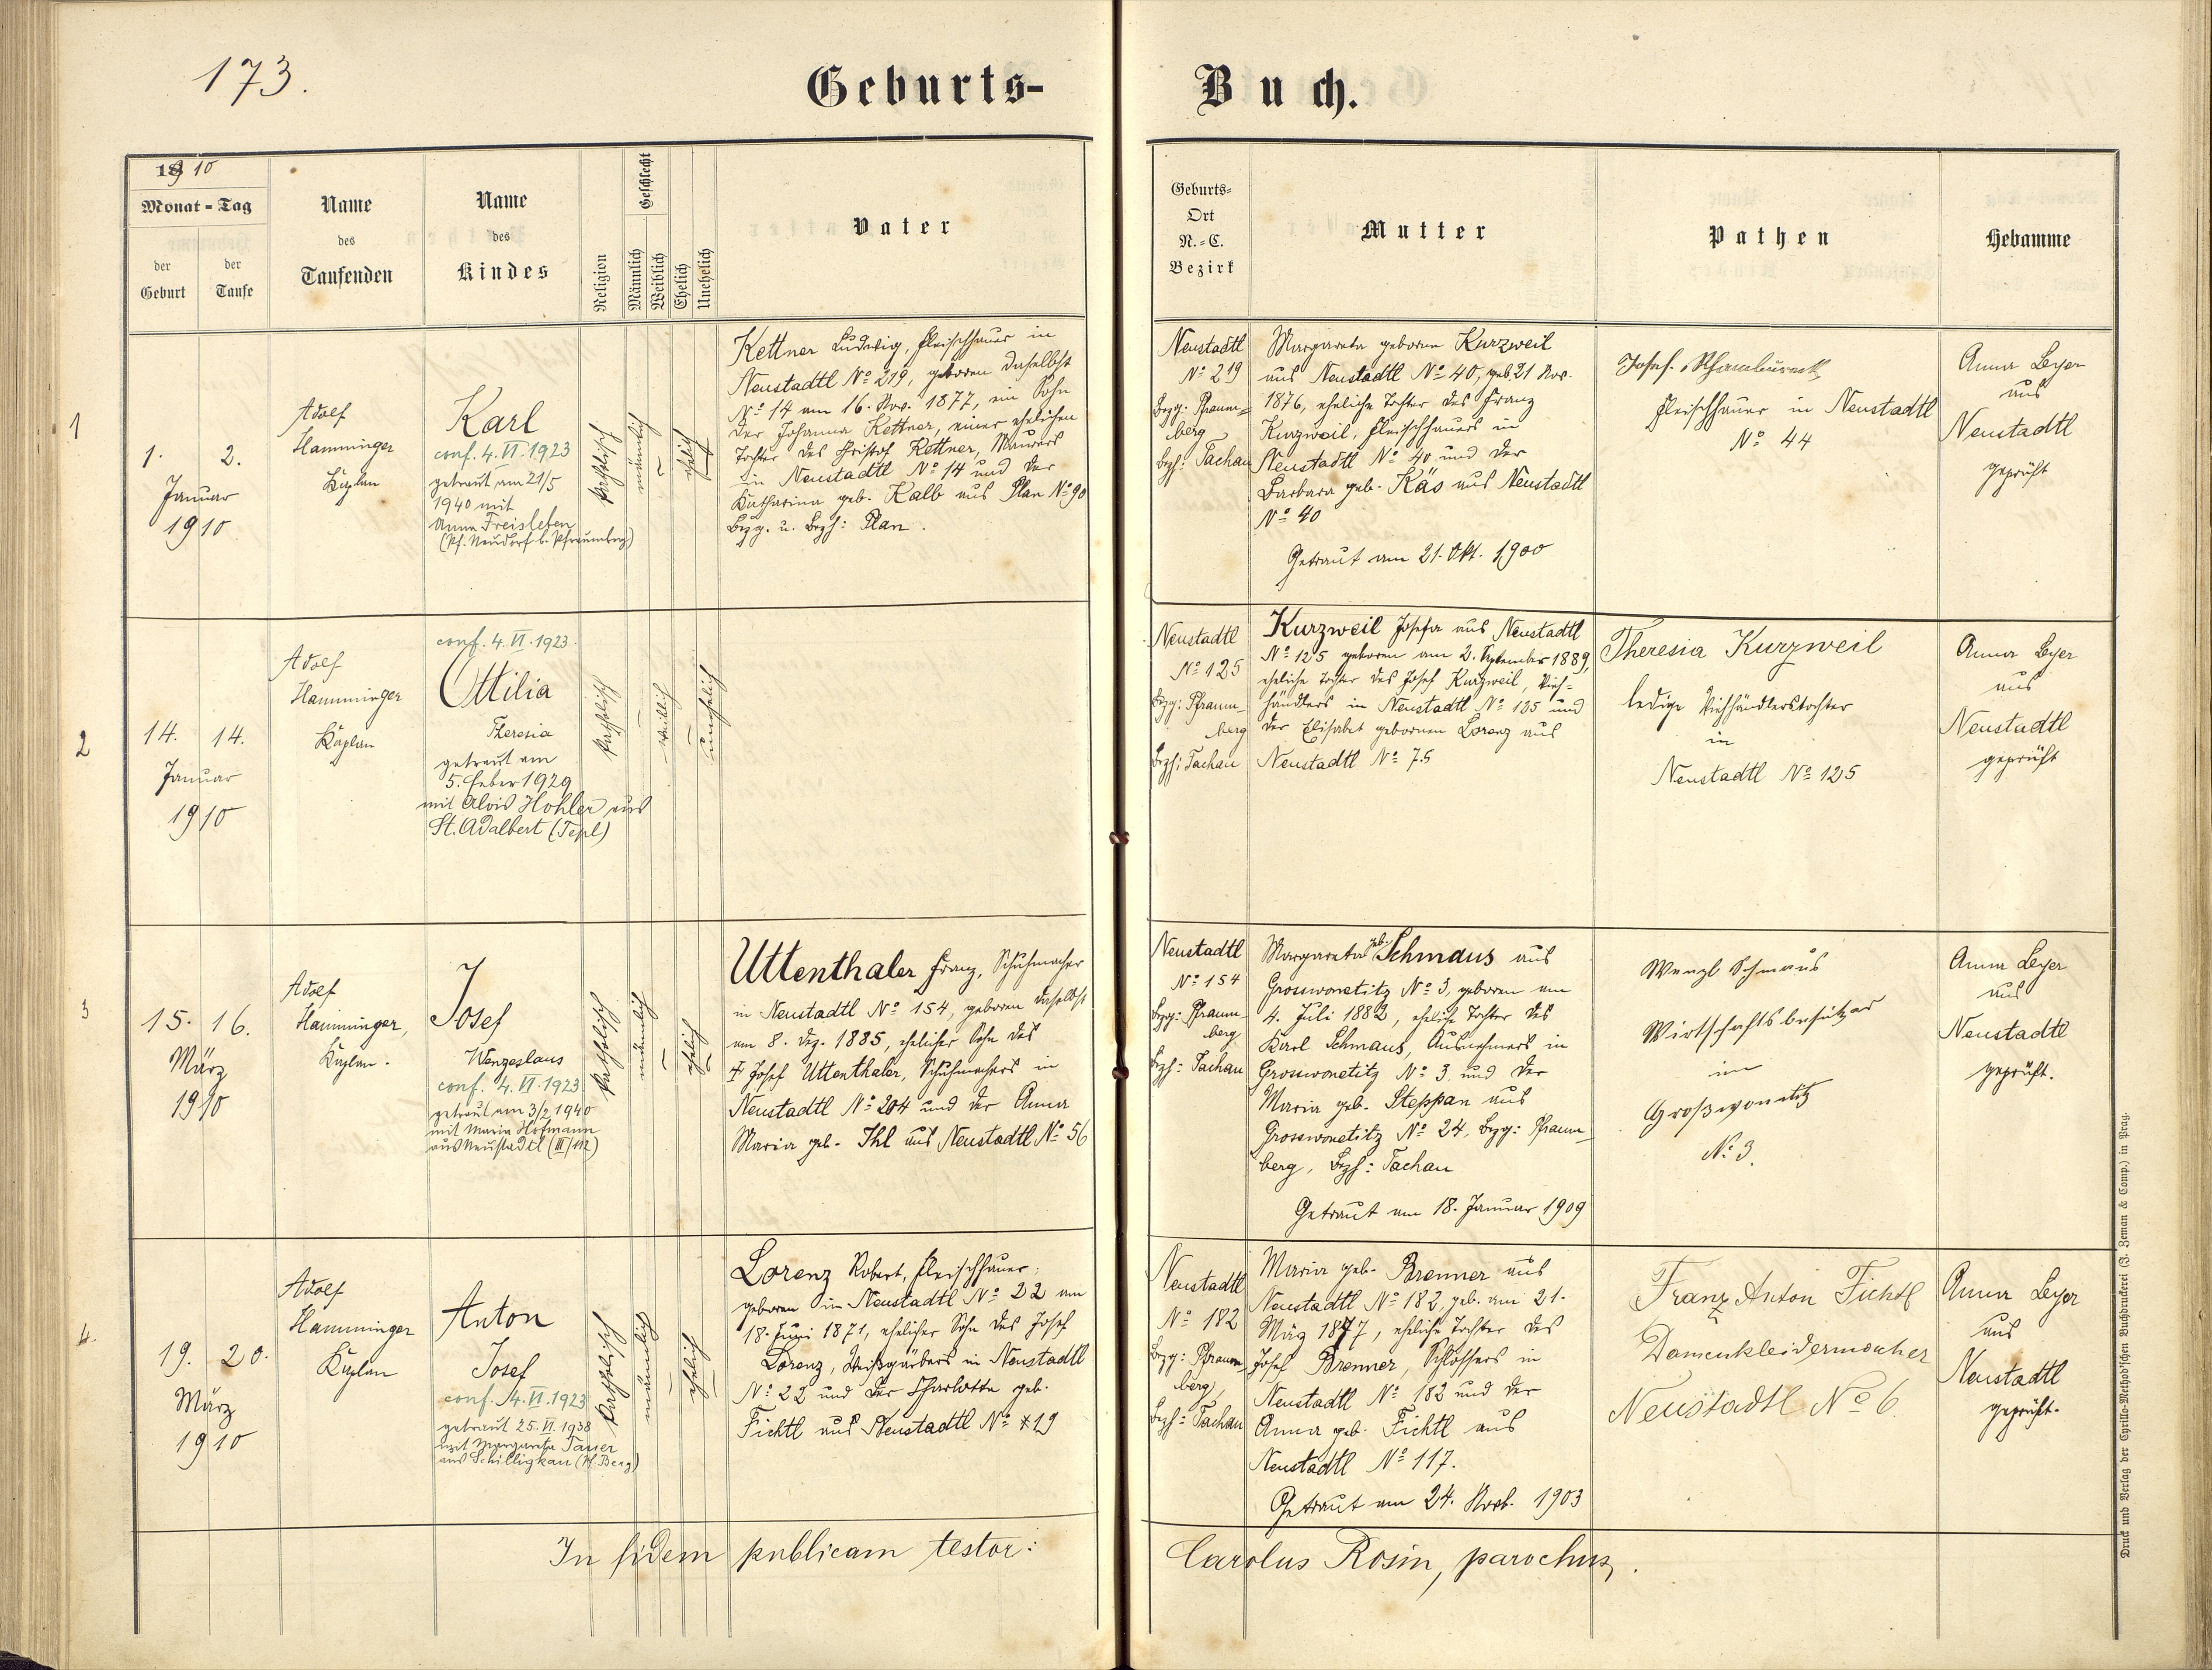 173.
Geburts-
Buch.
1910
Monat-Tag
der Geburt
der Taufe
Name des Taufenden
Name des Kindes
Religion
Geschlecht
Männlich
Weiblich
Ehelich
Unehelich
Vater
Geburts-Ort N.-C. Bezirk
Mutter
Pathen
Hebamme
1
1. 2.
Januar
1910
Adolf
Hamminger
Kaplan
Karl
conf. 4. VI. 1923
getraut am 21/5
1940 mit
Anna Freisleben
(Pf. Neudorf b. Pfraumberg)
katholisch
männlich
ehelich
Kettner Ludwig, Fleischhauer in
Neustadtl No 219, geboren daselbst
No 14 am 16. Nov. 1877, ein Sohn
der Johanna Kettner, einer ehelichen
Tochter des Christof Kettner, Maurers
in Neustadtl No 14 und der
Katharina geb. Kalb aus Plan No 90
Bezg. u. Bezh: Plan.
Neustadtl
No 219
Bezg: Pfraum=
berg
Bezh: Tachau
Margareta geboren Kurzweil
aus Neustadtl No 40, geb. 21 Nov.
1876, eheliche Tochter des Franz
Kurzweil, Fleischhauers in
Neustadtl No 40 und der
Barbara geb. Käs aus Neustadtl
No 40
Getraut am 21. Okt. 1900
Josef
Fleischhauer in Neustadtl
No 44
Anna Leyer
aus
Neustadtl
geprüft
2
14. 14.
Januar
1910
Adolf
Hamminger
Kaplan
conf. 4. VI. 1923.
Ottilia
Theresia
getraut am
5. Feber 1929
mit Alois Hohler aus
St. Adalbert (Tepl)
katholisch
weiblich
unehelich
Neustadtl
No 125
Bezg: Pfraum
berg
Bezh: Tachau
Kurzweil Josefa aus Neustadtl
No 125 geboren am 2. September 1889,
eheliche Tochter des Josef Kurzweil, Vieh=
händlers in Neustadtl No 125 und
der Elisabet gebornen Lorenz aus
Neustadtl No 75
Theresia Kurzweil
ledige Viehhändlerstochter
in
Neustadtl No 125
Anna Leyer
aus
Neustadtl
geprüft
3
15. 16.
März
1910
Adolf
Hamminger,
Kaplan.
Josef
Wenzeslaus
conf. 4. VI. 1923.
getraut am 3/2 1940
mit Maria Hofmann
aus Neustadtl (III/112)
katholisch
männlich
ehelich
Uttenthaler Franz, Schuhmacher
in Neustadtl No 154, geboren daselbst
am 8. Dez. 1885, ehelicher Sohn des
† Josef Uttenthaler, Schuhmachers in
Neustadtl No 204 und der Anna
Maria geb. Ihl aus Neustadtl No 56
Neustadtl
No 154
Bezg: Pfraum
berg
Bezh: Tachau
Margareta geb. Schmaus aus
Grosswonetitz No 3, geboren am
4. Juli 1882, eheliche Tochter des
Karl Schmaus, Ausnehmers in
Grosswonetitz No 3 und der
Maria geb. Steppan aus
Grosswonetitz No 24, Bezg: Pfraum_
berg, Bezh: Tachau
Getraut am 18. Januar 1909
Wenzl Schmaus
Wirtschaftsbesitzer
in
Großwonetitz
No 3.
Anna Leyer
aus
Neustadtl
geprüft.
4.
19. 20.
März
1910
Adolf
Hamminger
Kaplan
Anton
Josef
conf. 4. VI. 1923
getraut 25. VI. 1938
mit Margareta Tauer
aus Schilligkau (Pf. Berg)
katholisch
männlich
ehelich
Lorenz Robert, Fleischhauer,
geboren in Neustadtl No 22 am
18. Juni 1871, ehelicher Sohn des Josef
Lorenz, Weißgärbers in Neustadtl
No 22 und der Charlotta geb.
Fichtl aus Neustadtl No 19
Neustadtl
No 182
Bezg: Pfraum
berg,
Bezh: Tachau
Maria geb. Brenner aus
Neustadtl No 182, geb. am 21.
März 1877, eheliche Tochter des
Josef Brenner, Schlossers in
Neustadtl No 182 und der
Anna geb. Fichtl aus
Neustadtl No 117.
Getraut am 24. Novb. 1903
Franz Anton Fichtl
Damenkleidermacher
Neustadtl No 6
Anna Leyer
aus
Neustadtl
geprüft.
In fidem publicam testor:
Carolus Rosin, parochus.
Druck und Verlag der Cyrillo-Method'schen Buchdruckerei (J. Zeman & Comp.) in Prag.